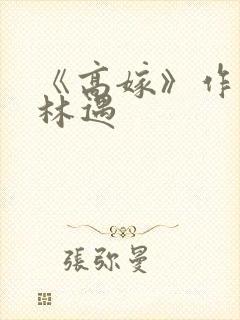 《高嫁》作
林遇
張弥曼